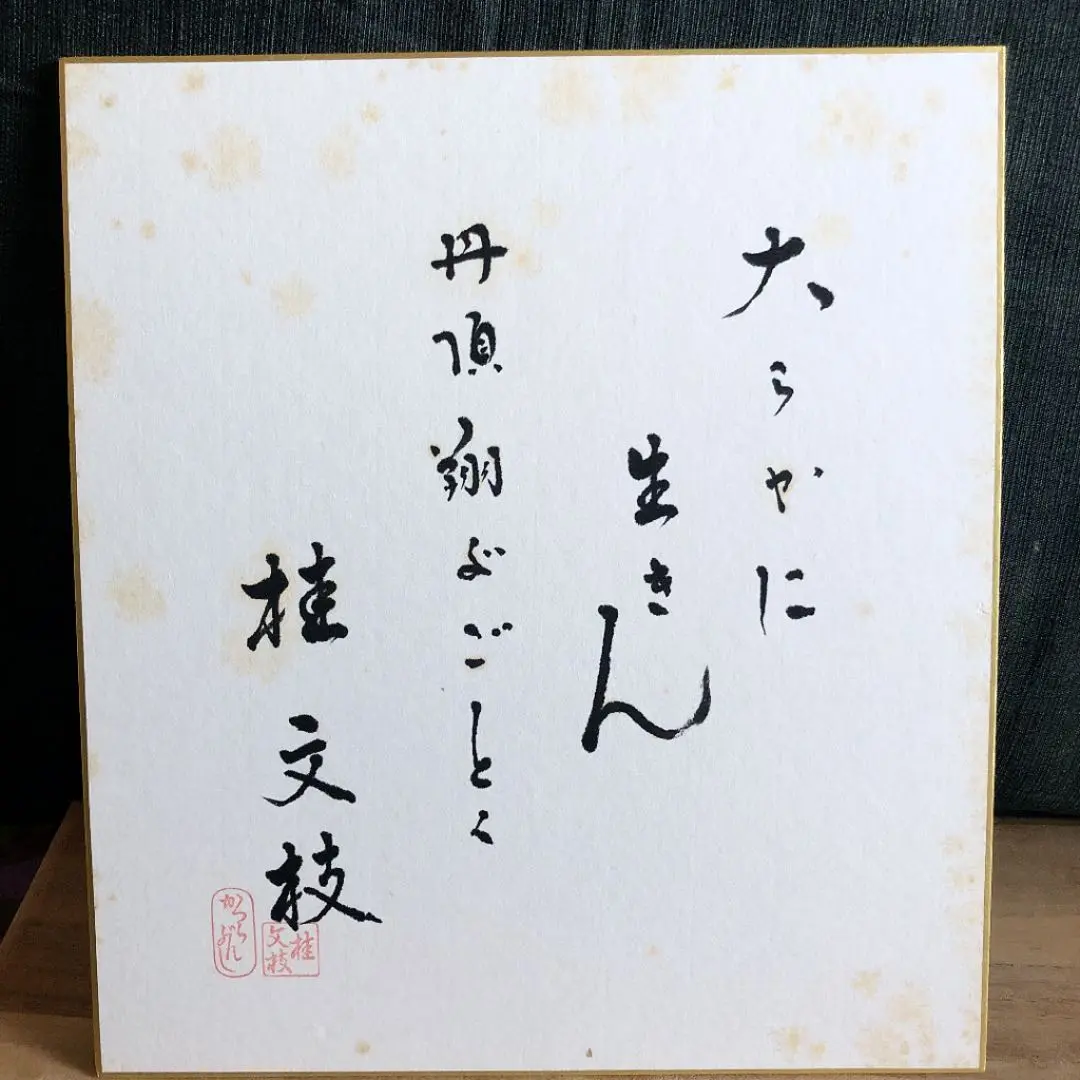 大らかに
生きん
丹頂翔ぶごとく
桂文枝
桂文枝
かつらぶんし